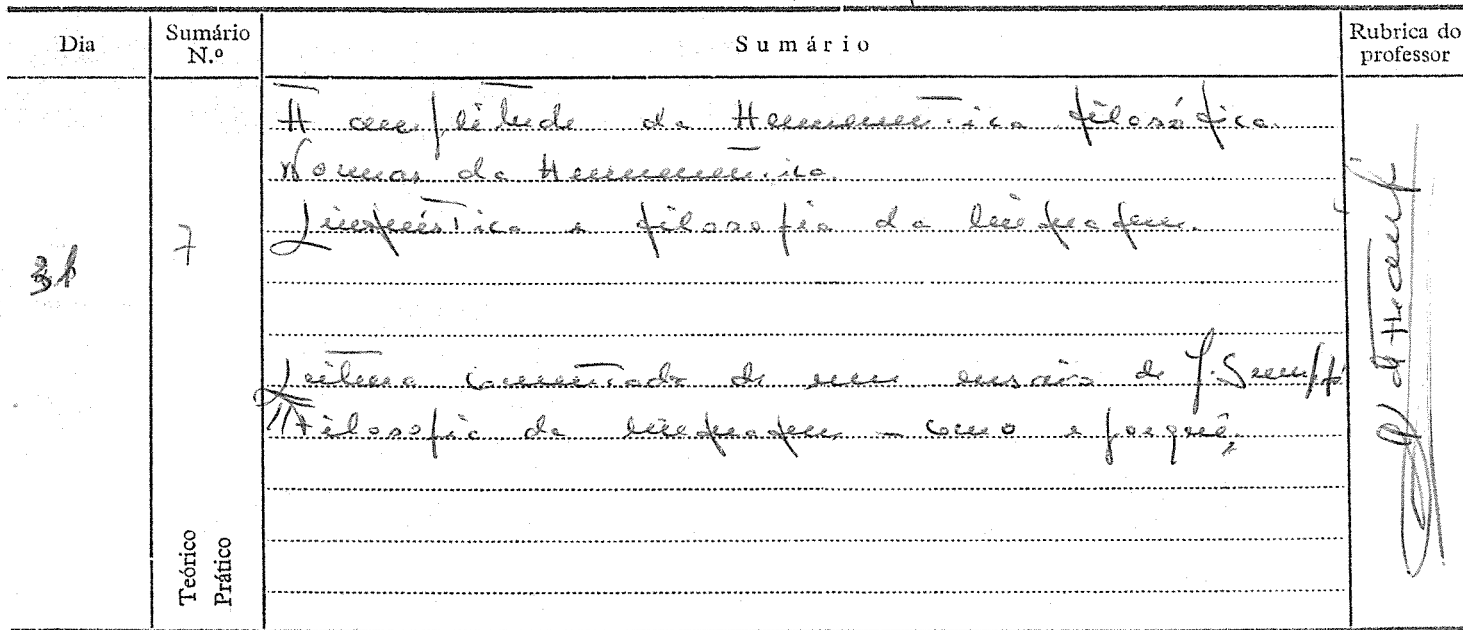 Dia
Sumário N.º
Sumário
Rubrica do professor
A amplitude da Hermenêutica filosófica.
Normas da Hermenêutica.
Linguística e filosofia da linguagem.
31
7
Leitura comentada de um ensaio de J. Sumpf
"Filosofia da linguagem – como e porquê"
Teórico
Prático